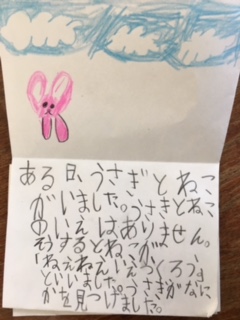 ある日、うさぎとねこ
がいました。うさきとねこ
のいえはありません。
そうするとねこが、
「ねえねえいえつくろう」
といいました。うさぎがなに
かを見つけました。